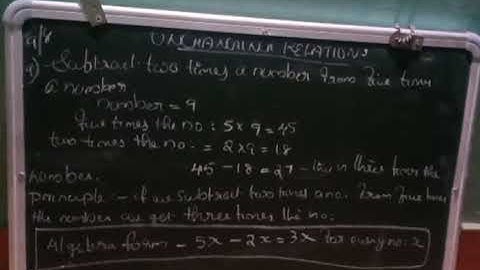 UNCHANGING RELATIONS
Subtract two times a number from five times
a number
number = 9
five times the no: 5 x 9 = 45
two times the no: = 2 x 9 = 18
45 - 18 = 27 - three times the
number.
principle - if we subtract two times a no. from five times
the number we get three times the no.
Algebra form - 5x - 2x = 3x for every no: x